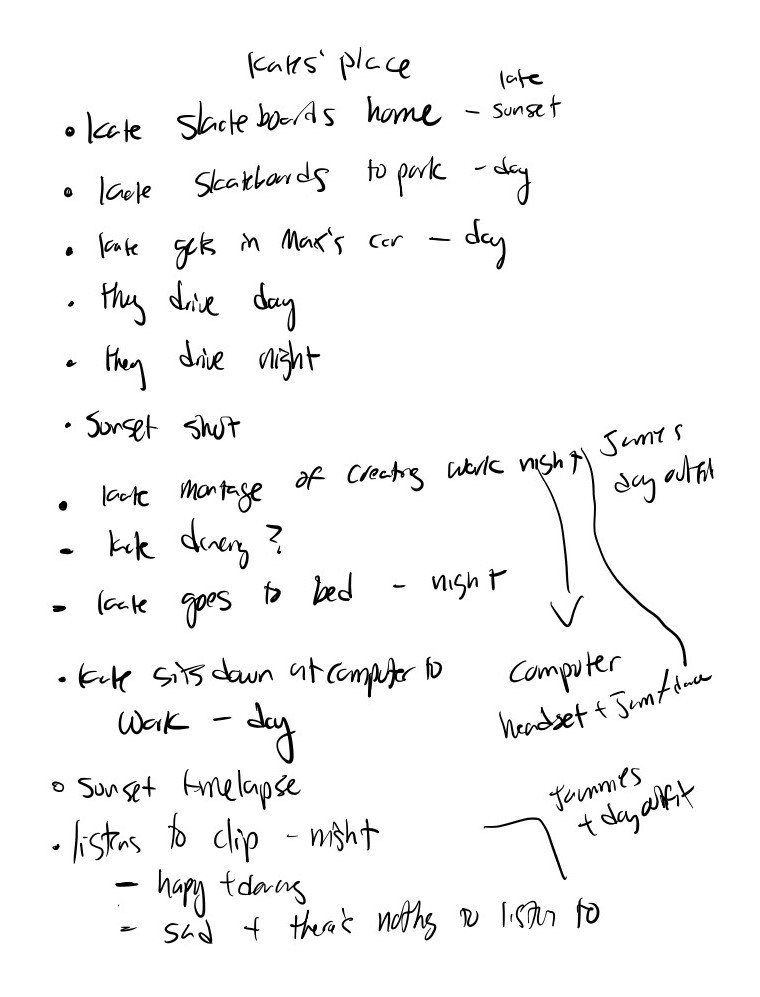 Kates' place
late
• Kate skateboards home - sunset
• Kate skateboards to park - day
• Kate gets in Max's car - day
• they drive day
• they drive night
• Sunset shot
Jammies
day outfit
• Kate montage of creating work night
- Kate dancing?
- Kate goes to bed - night
• Kate sits down at computer to
work - day
Computer
headset + Jam/dance
• Sunset timelapse
Jammies
+ day outfit
• listens to clip - night
- hapy + dancing
- sad + there's nothing to listen to